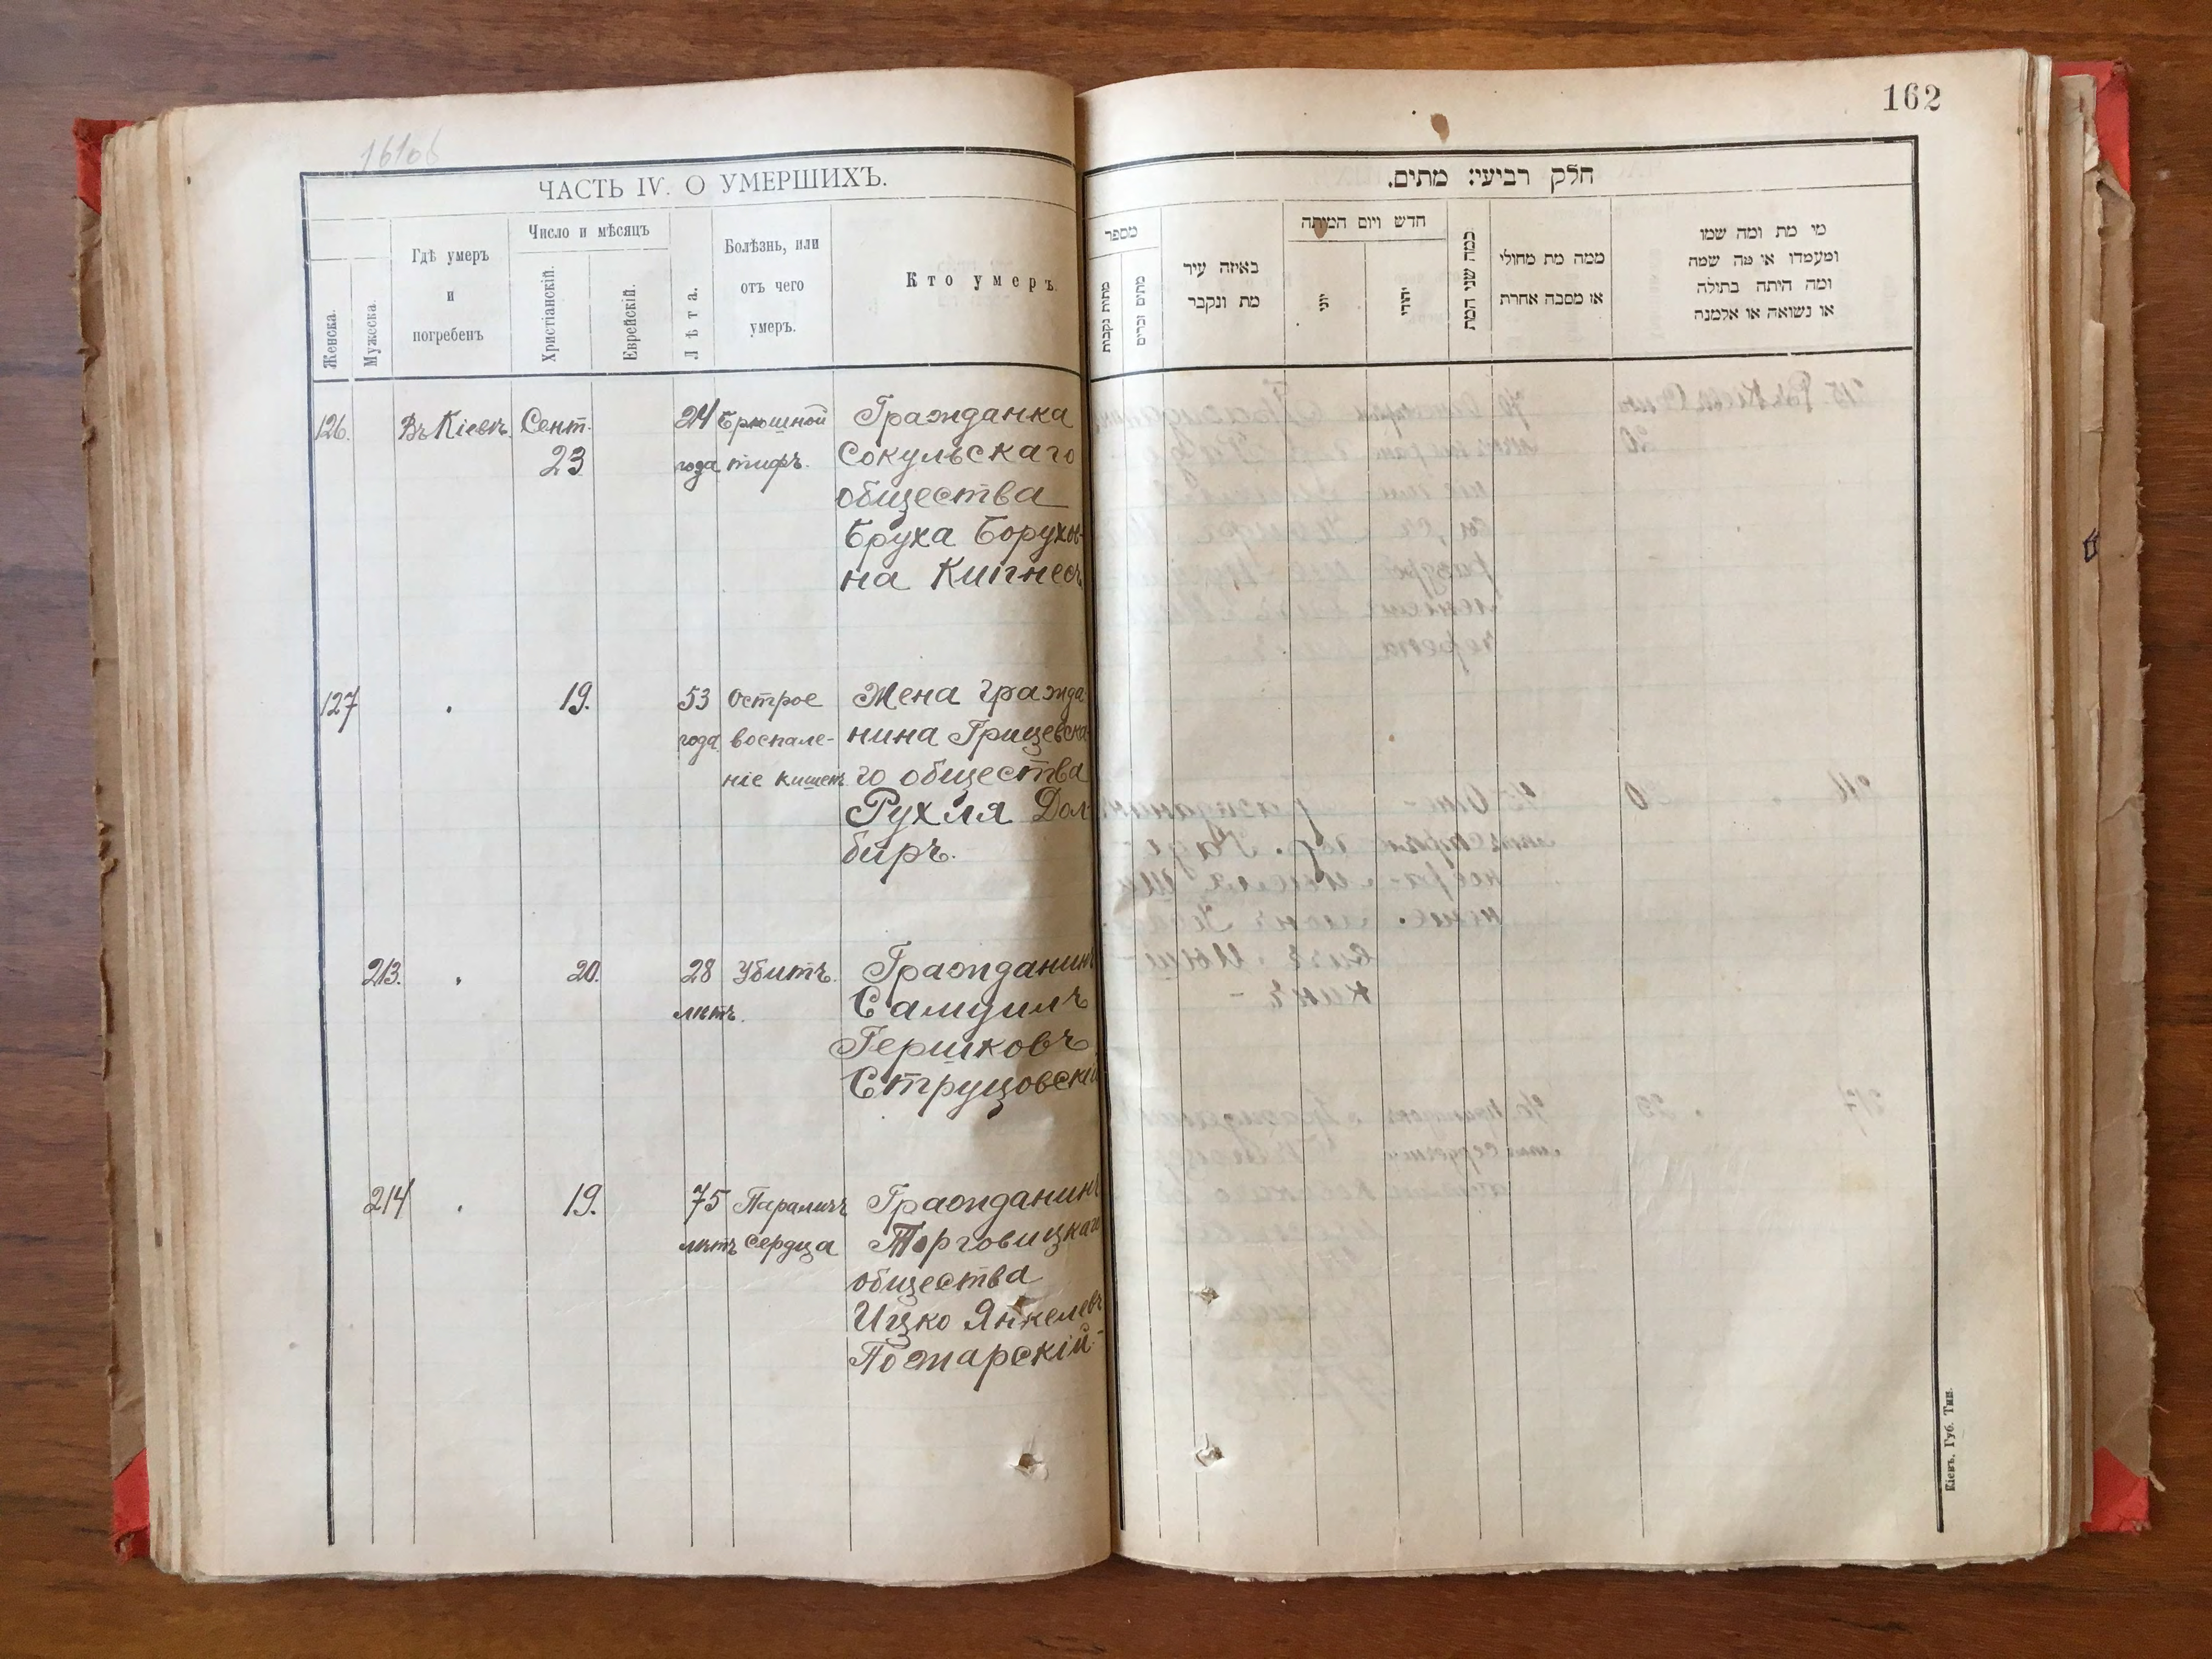 161об
ЧАСТЬ IV. О УМЕРШИХЪ.
Женска.
Мужеска.
Гдѣ умеръ
и
погребенъ
Число и мѣсяцъ
Христіанскій.
Еврейскій.
Лѣта.
Болѣзнь, или
отъ чего
умеръ.
Кто умеръ.
126. Въ Кіевѣ. Сент. 24 Брюшной Гражданка
23 года тифъ. Сокульскаго
общества
Бруха Борухов-
на Кигнесъ
127 19. 53 Острое Жена гражда
года воспале- нина Грицевска
ніе кишекъ го общества
Рухля Дол
биръ.
213. 20. 28 Убитъ. Гражданинъ
лѣтъ. Самуилъ
Гершковъ
Струцовскій
214 19. 75 Параличъ Гражданинъ
лѣтъ сердца Торговицкаго
общества
Ицко Янкелевъ
Пожарскій
162
חלק רביעי: מתים.
מספר
מתות נקבות
מתים זכרים
באיזה עיר
מת ונקבר
חדש ויום המיתה
יוני
יהודי
כמה שני המת
ממה מת מחולי
או מסבה אחרת
מי מת ומה שמו
ומעמדו או מה שמה
ומה היתה בתולה
או נשואה או אלמנה
Кіевъ, Губ. Тип.